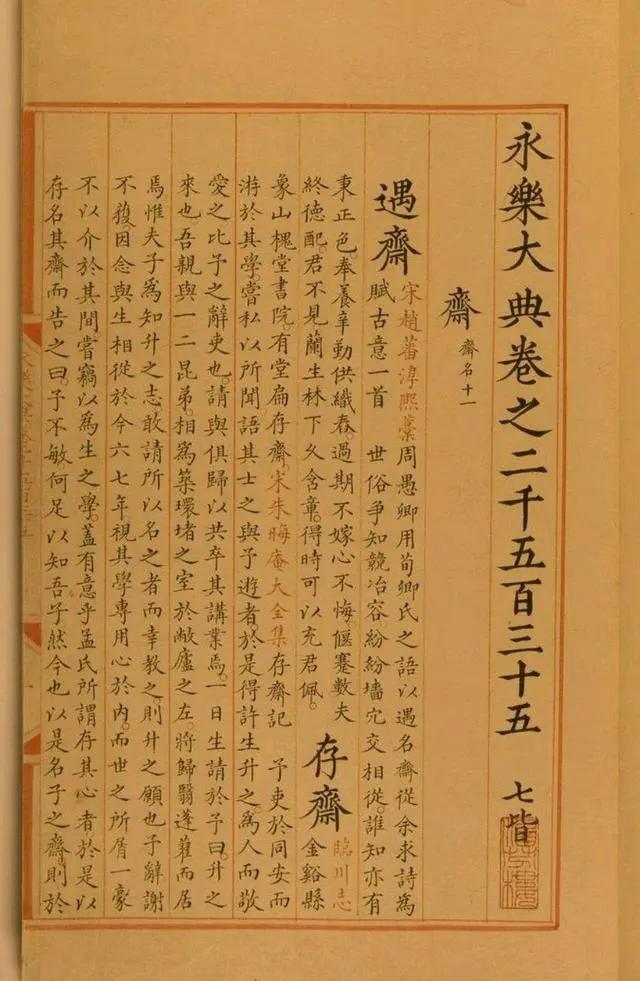 永樂大典卷之二千五百三十五 七皆
齋 齋名十一
遇齋 宋趙蕃淳熙藁 周愚卿用荀卿氏之語以遇名齋從余求詩為
賦古意一首 世俗爭知競冶容。紛紛墻宂交相從。誰知亦有
秉正色。奉養辛勤供織舂。過期不嫁心不悔。偃蹇數夫
終德配。君不見蘭生林下久含章。得時可以充君佩。
存齋 臨川志 金谿縣
象山槐堂書院。有堂扁存齋。宋朱晦庵大全集 存齋記 予吏於同安而
游於其學。嘗私以所聞語其士之與予遊者。於是得許生升之。為人而敬
愛之。比予之辭吏也。請與俱歸以共卒其講業焉。一日生請於予曰。升之
來也。吾親與一二昆弟。相為築環堵之室於敝廬之左。將歸翳蓬藋而居
焉。惟夫子為知升之志。敢請所以名之者而幸教之。則升之願也。予辭謝
不獲。因念與生相從於今六七年。視其學專用心於內。而世之所屑一豪
不以介於其間。嘗竊以為生之學。蓋有意乎孟氏所謂存其心者。於是以
存名其齋而告之曰。予不敏何足以知吾子。然今也以是名子之齋。則於